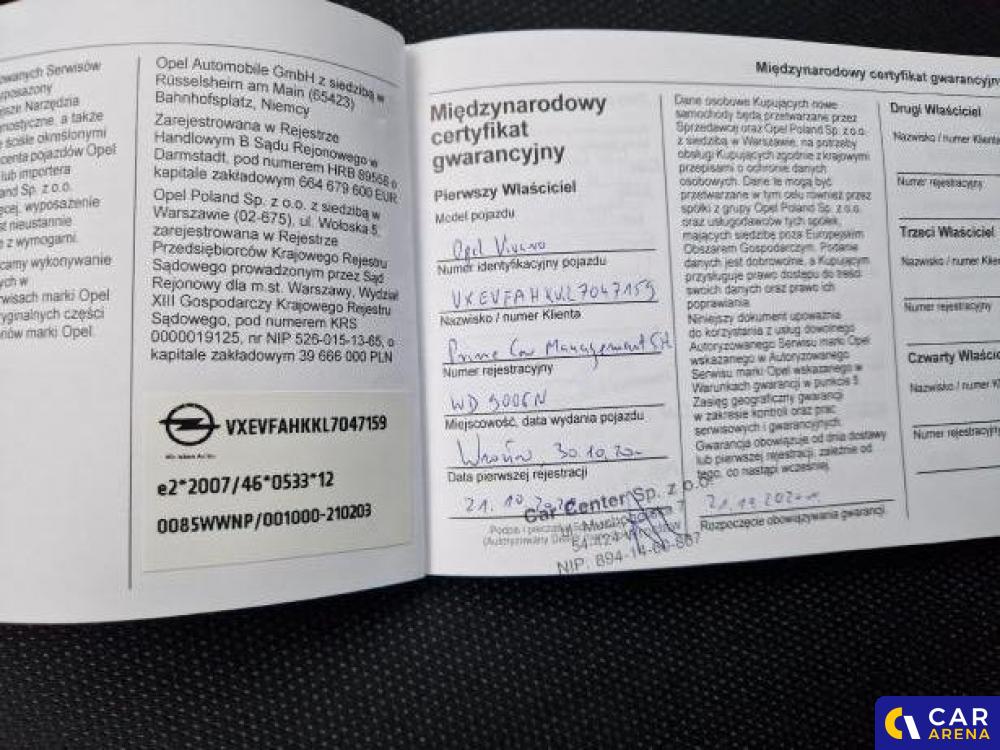 owanych Serwisów
posażony
Narzędzia
a także
ściśle określonymi
centa pojazdów Opel
lub importera
and Sp. z o.o.
wyposażenie
st nieustannie
e z wymogami.
camy wykonywanie
ych w
rwisach marki Opel
ryginalnych części
nów marki Opel.
Opel Automobile GmbH z siedzibą w
Rüsselsheim am Main (65423)
Bahnhofsplatz, Niemcy
Zarejestrowana w Rejestrze
Handlowym B Sądu Rejonowego w
Darmstadt, pod numerem HRB 89558 o
kapitale zakładowym 664 679 600 EUR
Opel Poland Sp. z o.o. z siedzibą w
Warszawie (02-675), ul. Wołoska 5,
zarejestrowana w Rejestrze
Przedsiębiorców Krajowego Rejestru
Sądowego prowadzonym przez Sąd
Rejonowy dla m.st. Warszawy, Wydział
XIII Gospodarczy Krajowego Rejestru
Sądowego, pod numerem KRS
0000019125, nr NIP 526-015-13-65, o
kapitale zakładowym 39 666 000 PLN
VXEVFAHKKL7047159
e2*2007/46*0533*12
0085WWNP/001000-210203
Międzynarodowy certyfikat gwarancyjny
Międzynarodowy
certyfikat
gwarancyjny
Pierwszy Właściciel
Model pojazdu
Opel Vivaro
Numer identyfikacyjny pojazdu
VXEVFAHKKL7047159
Nazwisko / numer Klienta
Prime Car Management SA
Numer rejestracyjny
WD 5006N
Miejscowość, data wydania pojazdu
Wrocław 30.10.20
Data pierwszej rejestracji
21.10.2020
Car Center Sp. z o.o.
ul. Muchoborska 7
54-424 Wrocław
NIP. 894-14-00-
Dane osobowe Kupujących nowe
samochody będą przetwarzane przez
Sprzedawcę oraz Opel Poland Sp. z o.o.
z siedzibą w Warszawie, na potrzeby
obsługi Kupujących zgodnie z krajowymi
przepisami o ochronie danych
osobowych. Dane te mogą być
przetwarzane w tym celu również przez
spółki z grupy Opel Poland Sp. z o.o.
oraz usługodawców tych spółek
mających siedzibę poza Europejskim
Obszarem Gospodarczym. Podanie
danych jest dobrowolne, a Kupującym
przysługuje prawo dostępu do treści
swoich danych oraz prawo ich
poprawiania.
Niniejszy dokument upoważnia
do korzystania z usług dowolnego
Autoryzowanego Serwisu marki Opel
wskazanego w Autoryzowanego
Serwisu marki Opel wskazanego w
Warunkach gwarancji w punkcie 3.
Zasięg geograficzny gwarancji
w zakresie kontroli oraz prac
serwisowych i gwarancyjnych.
Gwarancja obowiązuje od dnia dostawy
lub pierwszej rejestracji, zależnie od
tego, co nastąpi wcześniej.
21.10.2020
Rozpoczęcie obowiązywania gwarancji
Drugi Właściciel
Nazwisko / numer Klienta
Numer rejestracyjny
Trzeci Właściciel
Nazwisko / numer Klien
Numer rejestracyjny
Czwarty Właścic
Nazwisko / numer K
Numer rejestracyjny
CAR
ARENA